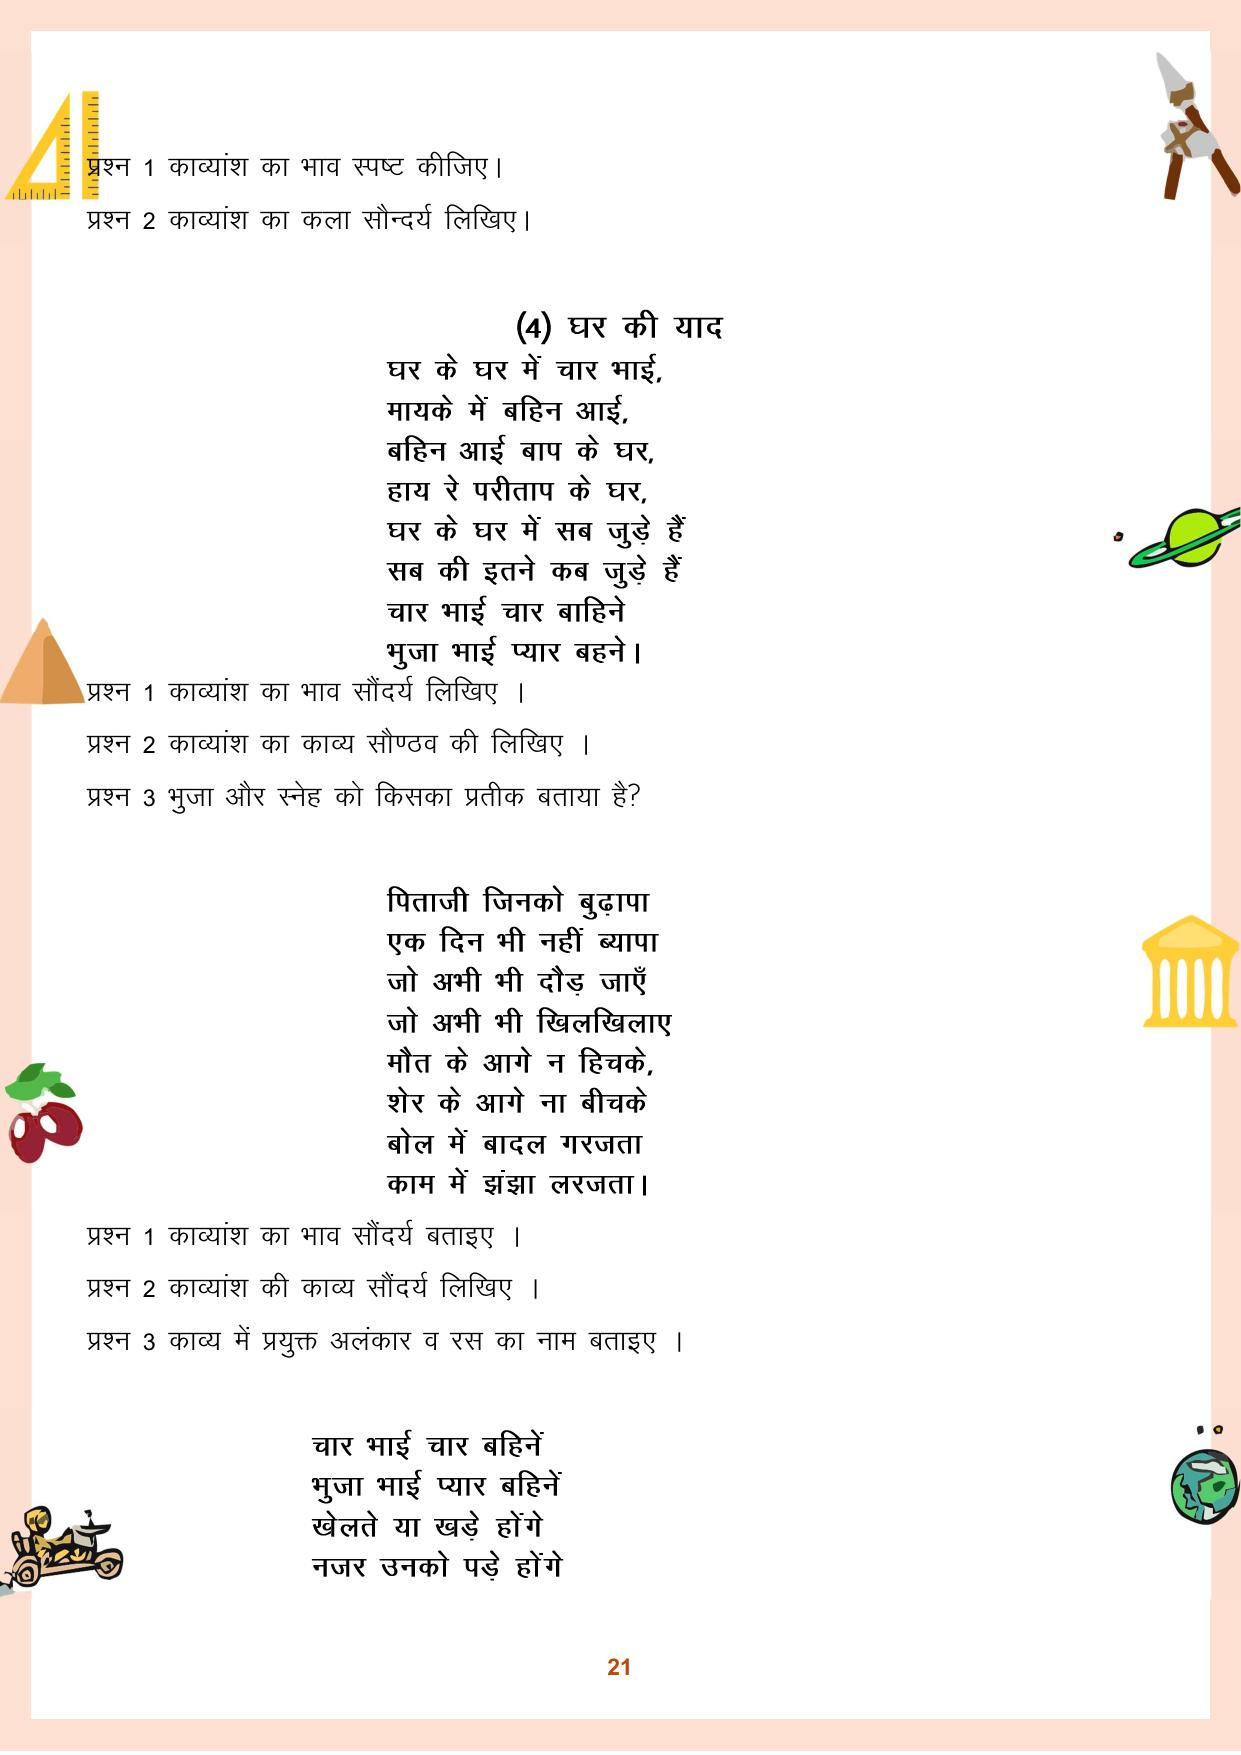 प्रश्न 1 काव्यांश का भाव स्पष्ट कीजिए।
प्रश्न 2 काव्यांश का कला सौन्दर्य लिखिए।
(4) घर की याद
घर के घर में चार भाई,
मायके में बहिन आई,
बहिन आई बाप के घर,
हाय रे परीताप के घर,
घर के घर में सब जुड़े हैं
सब की इतने कब जुड़े हैं
चार भाई चार बाहिने
भुजा भाई प्यार बहने।
प्रश्न 1 काव्यांश का भाव सौंदर्य लिखिए ।
प्रश्न 2 काव्यांश का काव्य सौण्ठव की लिखिए ।
प्रश्न 3 भुजा और स्नेह को किसका प्रतीक बताया है?
पिताजी जिनको बुढ़ापा
एक दिन भी नहीं ब्यापा
जो अभी भी दौड़ जाएँ
जो अभी भी खिलखिलाए
मौत के आगे न हिचके,
शेर के आगे ना बीचके
बोल में बादल गरजता
काम में झंझा लरजता।
प्रश्न 1 काव्यांश का भाव सौंदर्य बताइए ।
प्रश्न 2 काव्यांश की काव्य सौंदर्य लिखिए ।
प्रश्न 3 काव्य में प्रयुक्त अलंकार व रस का नाम बताइए ।
चार भाई चार बहिनें
भुजा भाई प्यार बहिनें
खेलते या खड़े होंगे
नजर उनको पड़े होंगे
21